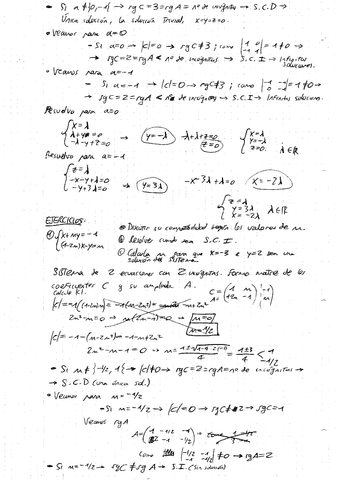 - Si a≠{0,-1} → rg C = 3 = rg A = nº de incógnitas → S.C.D →
Única solución, la solución trivial, x=y=z=0.
• Veamos para a=0
- Si a=0 → |C|=0 → rg C≠3; como |1 0; 0 -1| = 1≠0 →
→ rg C=2=rg A < nº de incógnitas → S.C.I → Infinitas soluciones.
• Veamos para a=-1
- Si a=-1 → |C|=0 → rg C≠3; como ≠0 →
→ rg C=2=rg A < nº de incógnitas → S.C.I → Infinitas soluciones.
Resuelvo para a=0
x=λ
λ+y=0 → y=-λ
-λ-y+z=0 -λ+λ+z=0 z=0
x=λ
y=-λ
z=0. λ∈ℝ
Resuelvo para a=-1
z=λ
-x-y+λ=0 → y=3λ -x-3λ+λ=0 x=-2λ
-y+3λ=0
z=λ
y=3λ
x=-2λ λ∈ℝ
EJERCICIOS:
x+my=-1
(1-2m)x-y=m
a Discutir su compatibilidad según los valores de m.
b Resolver cuando sea S.C.I.
c Calcula m para que x=-3 e y=2 sea una solución del sistema
Sistema de 2 ecuaciones con 2 incógnitas. Formo matriz de los
coeficientes C y su ampliada A.
Calculo |C|.
2m²-m=0 → m(2m-1)=0 → m=0
m=1/2
|C|=-1-(m-2m²)=-1-m+2m²
2m²-m-1=0 → = (1±3)/4 < 1
-1/2
- Si m≠{-1/2, 1} → |C|≠0 → rg C=2=rg A=nº de incógnitas →
→ S.C.D (una única sol.)
• Veamos para m=-1/2
- Si m=-1/2 → |C|=0 → rg C≠2 → rg C=1
Veamos rg A
como ≠0 → rg A=2
- Si m=-1/2 → rg C≠rg A → S.I. (Sin solución)